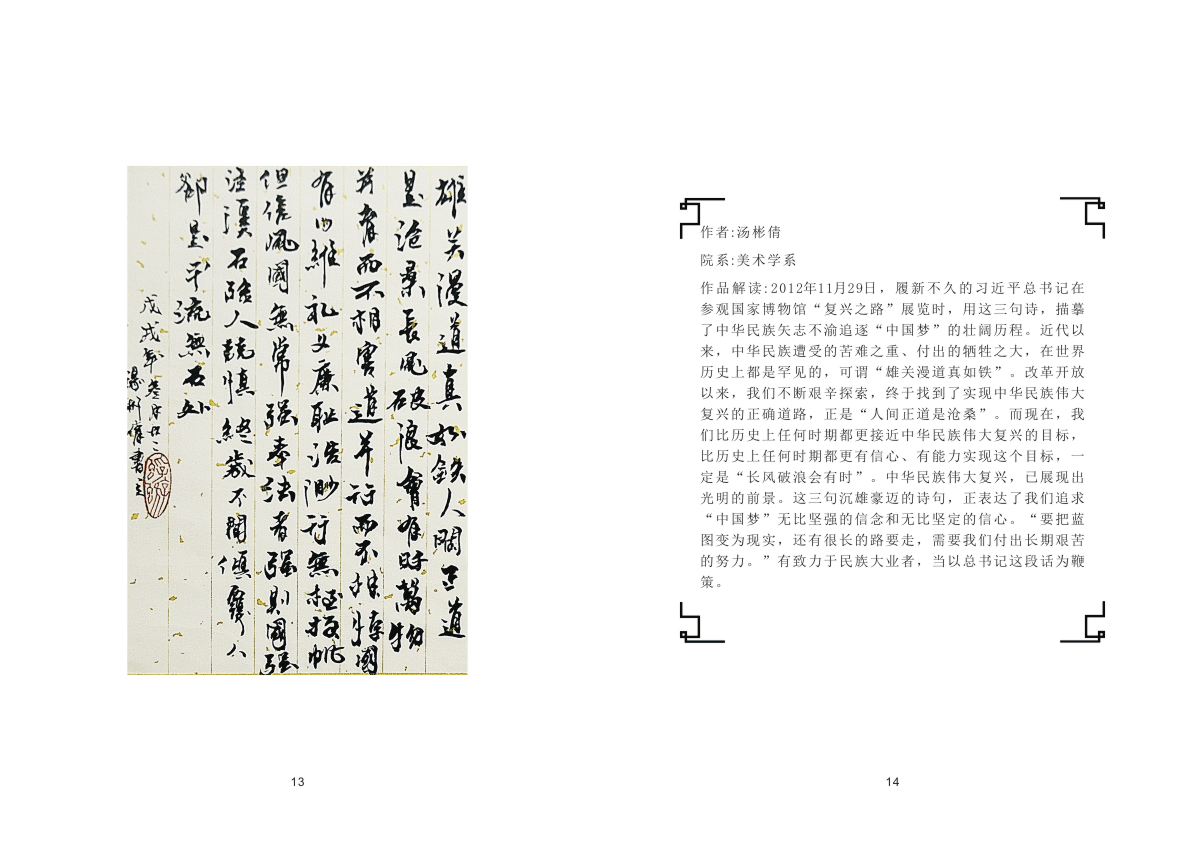 雄关漫道真如鉄人間正道
是滄桑長風破浪會有時萬物
并育而不相害道并行而不相悖國
有四維礼义廉耻浩渺行無極揚帆
但信風國無常强奉法者强則國强
涇溪石險人兢慎終歲不聞傾覆人
卻是平流無石処
戊戌年叁月廿二
湯彬倩書
13
作者:汤彬倩
院系:美术学系
作品解读:2012年11月29日，履新不久的习近平总书记在
参观国家博物馆“复兴之路”展览时，用这三句诗，描摹
了中华民族矢志不渝追逐“中国梦”的壮阔历程。近代以
来，中华民族遭受的苦难之重、付出的牺牲之大，在世界
历史上都是罕见的，可谓“雄关漫道真如铁”。改革开放
以来，我们不断艰辛探索，终于找到了实现中华民族伟大
复兴的正确道路，正是“人间正道是沧桑”。而现在，我
们比历史上任何时期都更接近中华民族伟大复兴的目标，
比历史上任何时期都更有信心、有能力实现这个目标，一
定是“长风破浪会有时”。中华民族伟大复兴，已展现出
光明的前景。这三句沉雄豪迈的诗句，正表达了我们追求
“中国梦”无比坚强的信念和无比坚定的信心。“要把蓝
图变为现实，还有很长的路要走，需要我们付出长期艰苦
的努力。”有致力于民族大业者，当以总书记这段话为鞭
策。
14